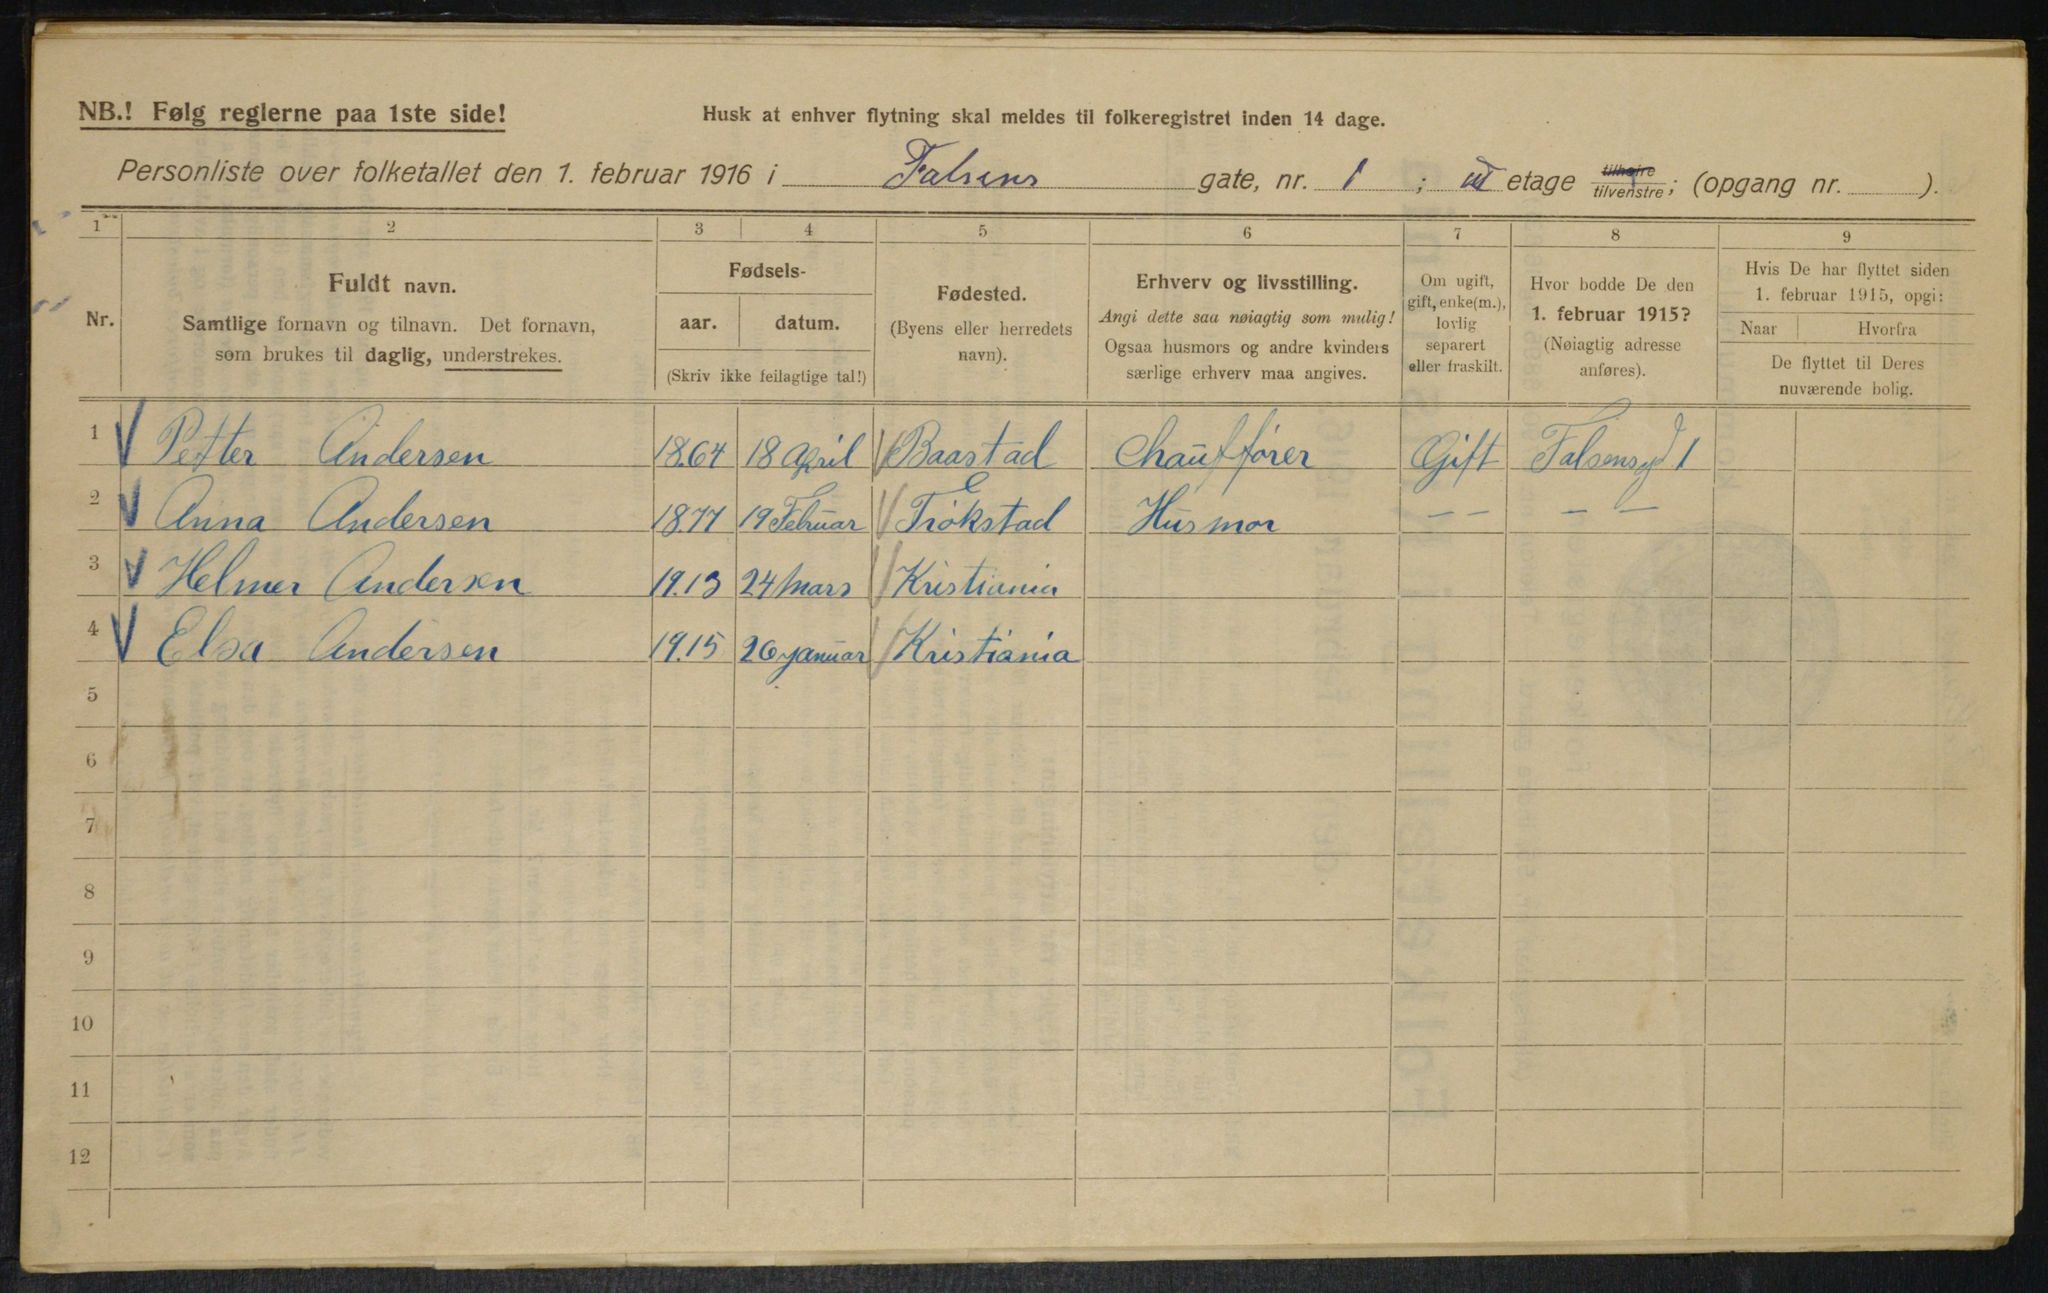 NB.! Følg reglerne paa 1ste side!
Husk at enhver flytning skal meldes til folkeregistret inden 14 dage.
Personliste over folketallet den 1. februar 1916 i Falsens gate, nr. 1 ; III etage tilhøire tilvenstre; (opgang nr. ).
1 2 3 4 5 6 7 8 9
Nr.
Fuldt navn.
Samtlige fornavn og tilnavn. Det fornavn,
som brukes til daglig, understrekes.
Fødsels-
aar. datum.
(Skriv ikke feilagtige tal!)
Fødested.
(Byens eller herredets
navn).
Erhverv og livsstilling.
Angi dette saa nøiagtig som mulig!
Ogsaa husmors og andre kvinders
særlige erhverv maa angives.
Om ugift,
gift, enke(m.),
lovlig
separert
eller fraskilt.
Hvor bodde De den
1. februar 1915?
(Nøiagtig adresse
anføres).
Hvis De har flyttet siden
1. februar 1915, opgi:
Naar Hvorfra
De flyttet til Deres
nuværende bolig.
1 Petter Andersen 1864 18 April Baastad Chauffører Gift Falsensgd 1
2 Anna Andersen 1877 19 Februar Trökstad Husmor — — — —
3 Helmer Andersen 1913 24 Mars Kristiania
4 Elsa Andersen 1915 26 januar Kristiania
5
6
7
8
9
10
11
12